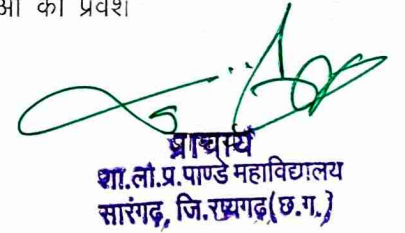 का प्रवेश
प्राचार्य
शा.लो.प्र.पाण्डे महाविद्यालय
सारंगढ़, जि.रायगढ़(छ.ग.)